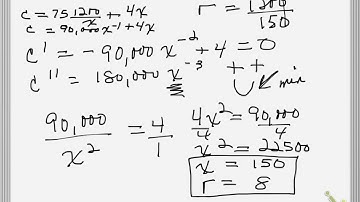 c = 75 · 1200/x + 4x
c = 90,000x⁻¹ + 4x
r = 1200/150
c' = -90,000x⁻² + 4 = 0
c'' = 180,000x⁻³
+ +
min
90,000/x² = 4/1
4x²/4 = 90,000/4
x² = 22500
x = 150
r = 8